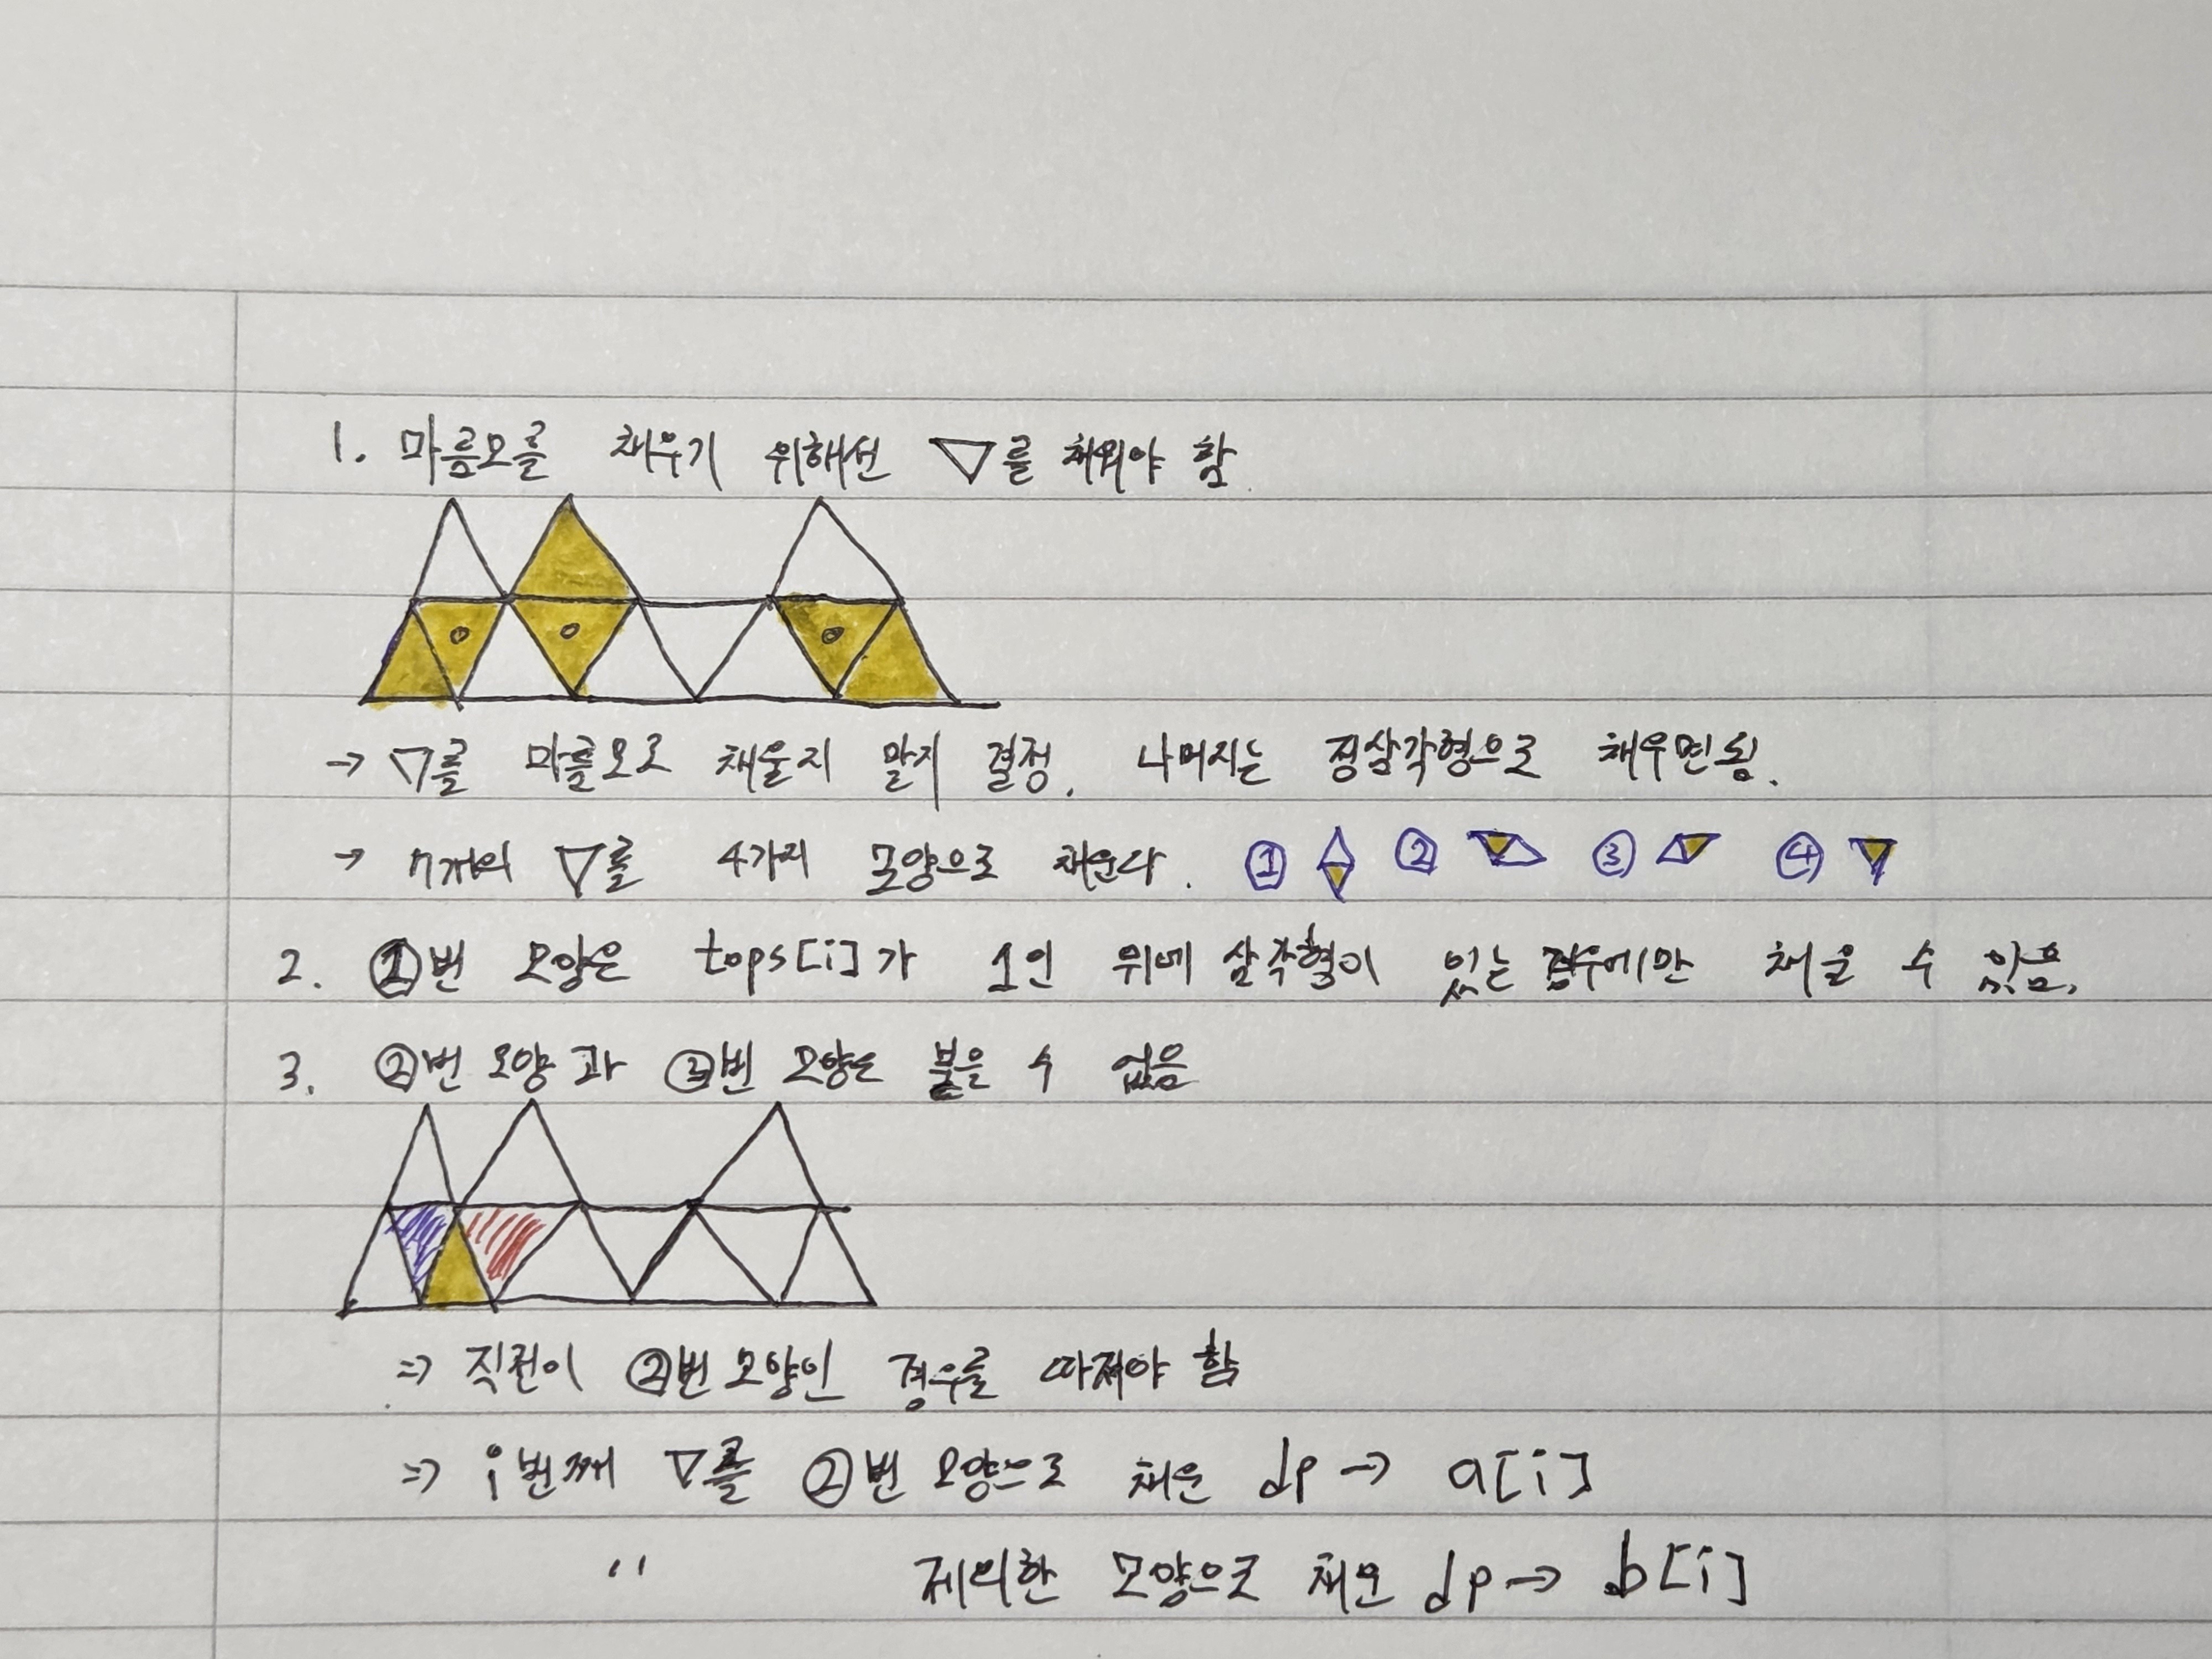 1. 마름모를 채우기 위해선 ▽를 채워야 함.
→ ▽를 마름모로 채울지 말지 결정. 나머지는 정삼각형으로 채우면됨.
→ n개의 ▽를 4가지 모양으로 채운다. ① ② ③ ④
2. ①번 모양은 tops[i]가 1인 위에 삼각형이 있는 경우에만 채울 수 있음.
3. ②번 모양과 ③번 모양은 붙을 수 없음
⇒ 직전이 ②번 모양인 경우를 따져야 함
⇒ i번째 ▽를 ②번 모양으로 채운 dp → a[i]
〃 제외한 모양으로 채운 dp → b[i]